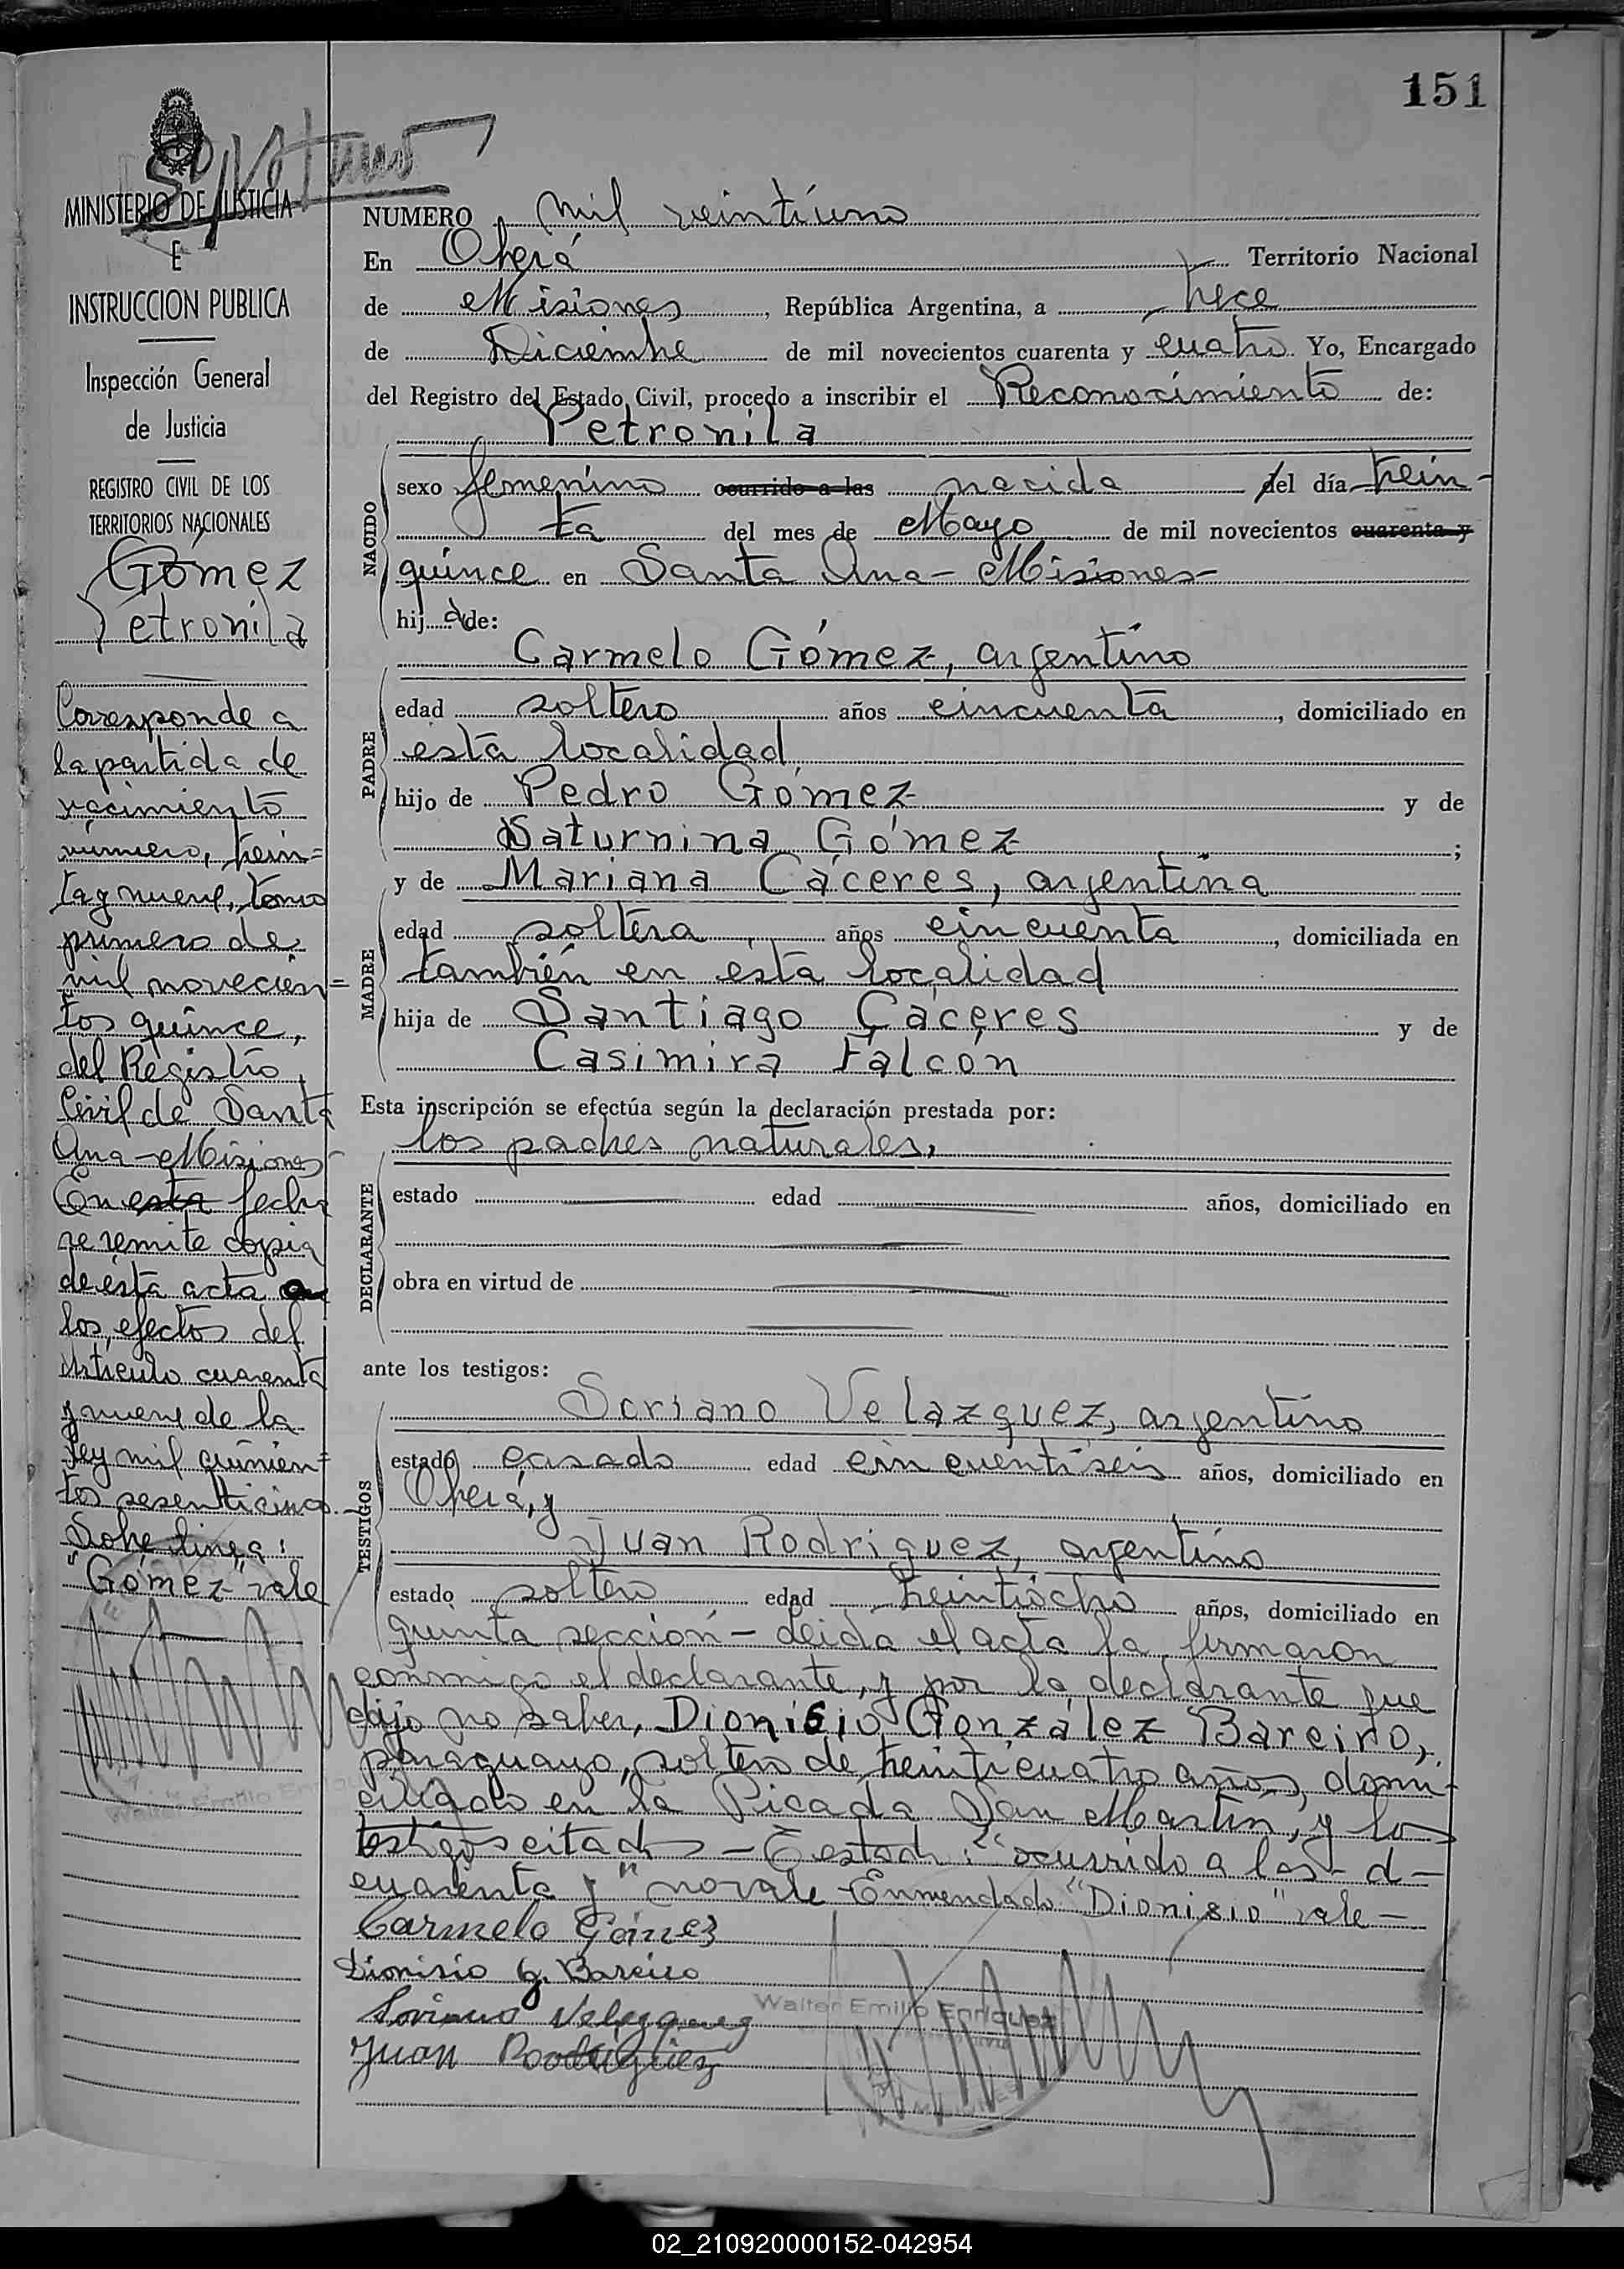 151
MINISTERIO DE JUSTICIA
E
INSTRUCCION PUBLICA
Inspección General
de Justicia
REGISTRO CIVIL DE LOS
TERRITORIOS NACIONALES
Gómez
Petronila
Corresponde a
la partida de
nacimiento
número, trein=
ta y nueve, tomo
primero de
mil novecien=
tos quince,
del Registro
Civil de Santa
Ana - Misiones -
En esta fecha
se remite copia
de ésta acta a
los efectos del
Artículo cuarenta
y nueve de la
Ley mil quinien=
tos sesenticinco.
Sobre línea:
"Gómez" vale
NUMERO mil veintiuno
En Oberá Territorio Nacional
de Misiones, República Argentina, a trece
de Diciembre de mil novecientos cuarenta y cuatro Yo, Encargado
del Registro del Estado Civil, procedo a inscribir el Reconocimiento de:
Petronila
NACIDO
sexo femenino ocurrido a las nacida del día trein-
ta del mes de Mayo de mil novecientos cuarenta y
quince en Santa Ana - Misiones -
hija de:
Carmelo Gómez, argentino
PADRE
edad soltero años cincuenta, domiciliado en
esta localidad
hijo de Pedro Gómez y de
Saturnina Gómez ;
y de Mariana Cáceres, argentina
MADRE
edad soltera, años cincuenta, domiciliada en
también en esta localidad
hija de Santiago Cáceres y de
Casimira Falcón
Esta inscripción se efectúa según la declaración prestada por:
los padres naturales,
DECLARANTE
estado edad años, domiciliado en
obra en virtud de
ante los testigos:
TESTIGOS
Soriano Velazquez, argentino
estado casado edad cincuentiseis años, domiciliado en
Oberá, y
Juan Rodriguez, argentino
estado soltero edad treintiocho años, domiciliado en
quinta sección - Leída el acta la firmaron
conmigo el declarante, y por la declarante que
dijo no saber, Dionisio González Bareiro,
paraguayo, soltero de treinticuatro años, domi-
ciliado en la Picada San Martín, y los
testigos citados - Testado: "ocurrido a las - d -
cuarenta y" no vale - Enmendado "Dionisio" vale -
Carmelo Gómez
Dionisio G. Bareiro
Soriano Velazquez
Juan Rodriguez
Walter Emilio Enriquez
02_210920000152-042954